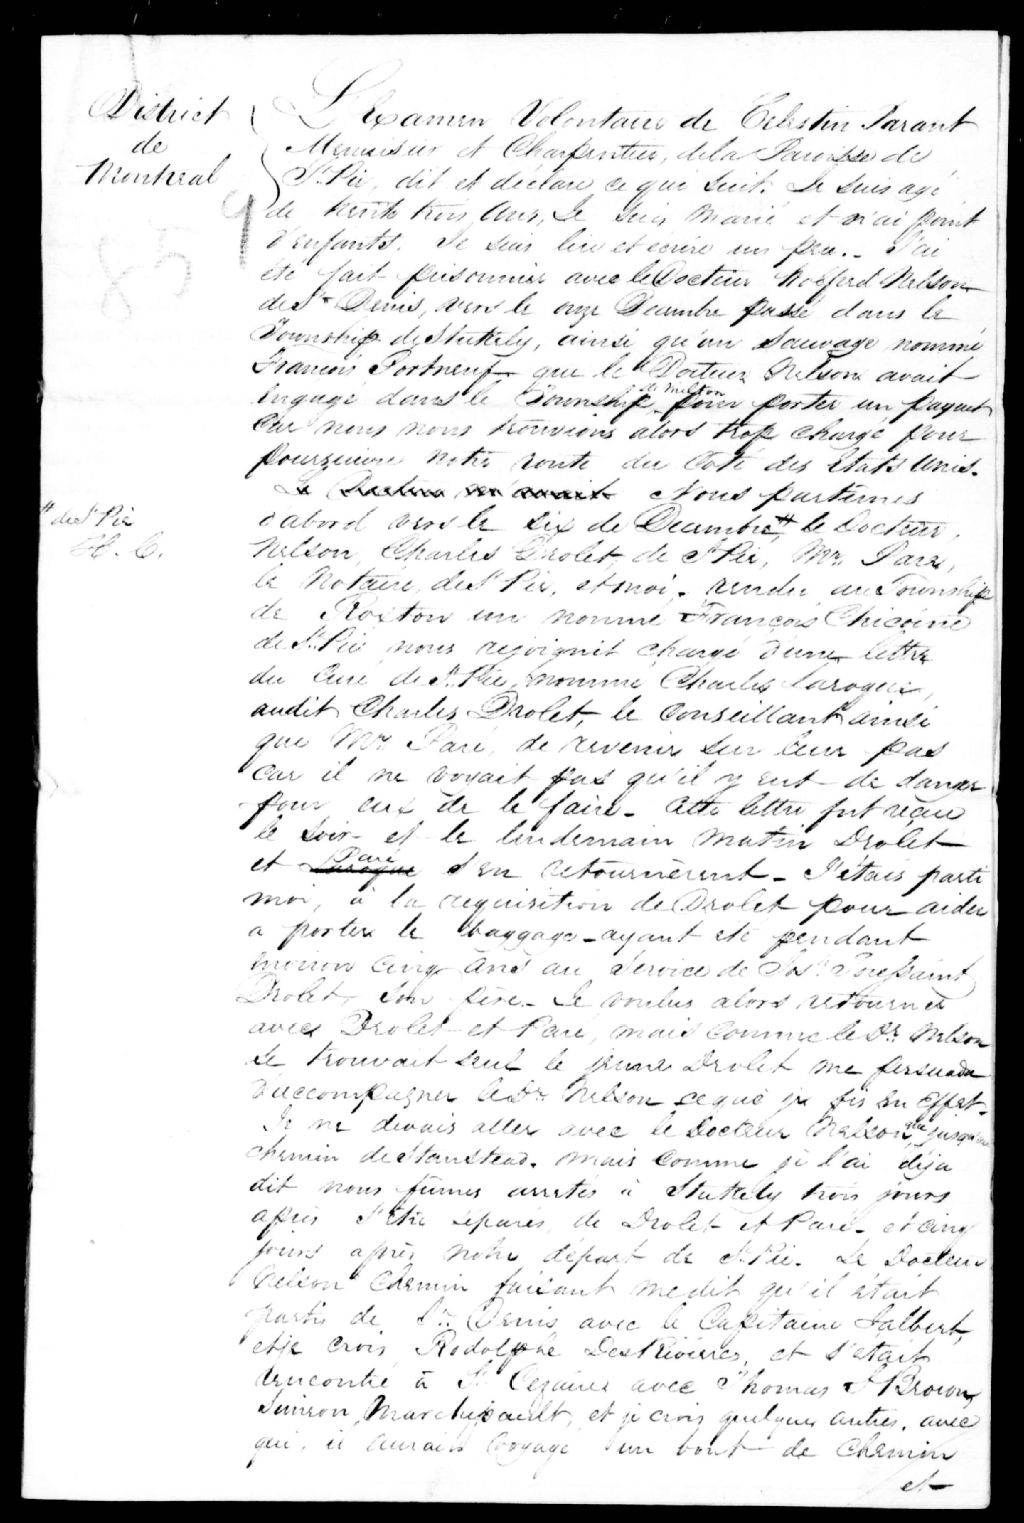 District
de
Montréal
859
L'Examen Volontaire de Celestin Parant
Menuisier et Charpentier, de la Paroisse de
St. Pie, dit et déclare ce qui suit. Je suis agé
de trente trois Ans, Je suis marié et n'ai point
d'enfants. Je sais lire et ecrire un peu. _ J'ai
été fait prisonnier avec le Docteur Wolferd Nelson
de St. Denis, vers le onze Decembre passé dans le
Township de Stukely, ainsi qu'un Sauvage nommé
François Portneuf que le Docteur Nelson avait
engagé dans le Township de Milton pour porter un paquet
Car nous nous trouvions alors trop chargé pour
poursuivre notre route du Coté des Etats Unis.
Le Docteur m'avait Nous partimes
d'abord vers le six de Decembre, le Docteur
" de St Pie
H. C.
Nelson, Charles Drolet, de St Pie, Mr. Paré,
le Notaire, de St Pie, et moi. rendu au Township
de Roxton un nommé François Chicoine
de St. Pie nous rejoignit chargé d'une lettre
du Curé de St. Pie, nommé Charles Larogue,
audit Charles Drolet, le conseillant ainsi
que Mr. Paré, de revenir sur leur pas
car il ne voyait pas qu'il y eut de danger
pour eux de le faire. Cette lettre fut reçue
le soir et le lendemain matin Drolet
et Larogue Paré s'en retournèrent _ J'étais parti
moi, à la requisition de Drolet pour aider
a porter le baggage _ ayant eté pendant
environ cinq Ans au Service de Jos. Toussaint
Drolet, son père _ Je voulus alors retourner
avec Drolet et Paré, mais comme le Dr. Nelson
se trouvait seul le jeune Drolet me persuada
d'accompagner le Dr. Nelson ce que je fis en effet.
Je ne devais aller avec le Docteur Nelson que jusqu'au
chemin de Stanstead. mais comme je l'ai déja
dit nous fûmes arretés à Stukely trois jours
après s'être séparés de Drolet et Paré _ et cinq
jours après notre départ de St. Pie. Le Docteur
Nelson Chemin faisant me dit qu'il était
partis de St. Denis avec le Capitaine Jalbert,
et je crois Rodolphe DesRivières, et s'était
rencontré à St Cezaire avec Thomas S Brown,
Simeon Marchesault, et je crois quelques autres, avec
qui, il aurait voyagé un bout de Chemin
et